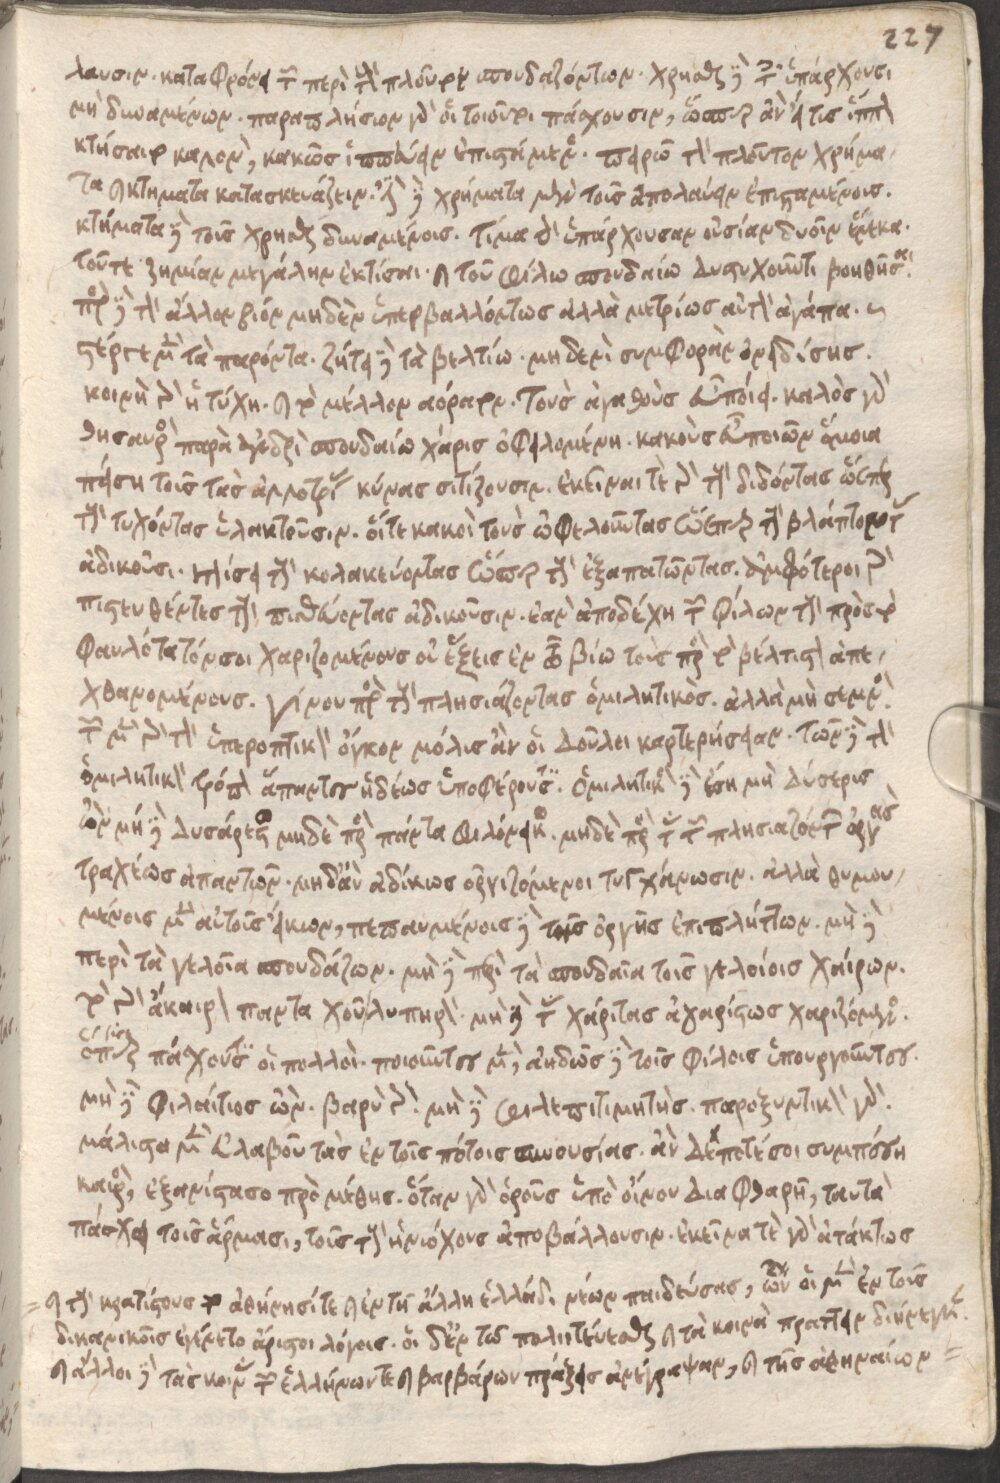 227
λαυσιν. καταφρόνει τῶν περὶ τὸν πλοῦτον σπουδαζόντων. χρῆσθαι δὲ τοῖς ὑπάρχουσι
μὴ δυναμένων. παραπλήσιον γὰρ οἱ τοιοῦτοι πάσχουσιν, ὥσπερ ἂν εἴ τις ἵππον
κτήσαιτο καλὸν, κακῶς ἱππεύειν ἐπιστάμενος. πειρῶ τὸν πλοῦτον χρήμα-
τα καὶ κτήματα κατασκευάζειν. ἔστι δὲ χρήματα μὲν τοῖς ἀπολαύειν ἐπισταμένοις.
κτήματα δὲ τοῖς χρῆσθαι δυναμένοις. τίμα τὴν ὑπάρχουσαν οὐσίαν δυοῖν ἕνεκα.
τοῦτε ζημίαν μεγάλην ἐκτῖσαι. καὶ τοῦ φίλω σπουδαίω δυστυχοῦντι βοηθῆσαι.
πρὸς δὲ τὸν ἄλλον βίον μηδὲν ὑπερβαλλόντως ἀλλὰ μετρίως αὐτὸν ἀγάπα.
στέργε μὲν τὰ παρόντα. ζήτει δὲ τὰ βελτίω. μηδενὶ συμφορὰν ὀνειδίσης.
κοινὴ γὰρ ἡ τύχη. καὶ τὸ μέλλον ἀόρατον. τοὺς ἀγαθοὺς εὖ ποίει. καλὸς γὰρ
θησαυρὸς παρὰ ἀνδρὶ σπουδαίω χάρις ὀφειλομένη. κακοὺς εὖ ποιῶν ὅμοια
πείση τοῖς τὰς ἀλλοτρίας κύνας σιτίζουσιν. ἐκεῖναί τε γὰρ τοὺς διδόντας ὥσπερ
τοὺς τυχόντας ὑλακτοῦσιν. οἵτε κακοὶ τοὺς ὠφελοῦντας ὥσπερ τοὺς βλάπτοντας
ἀδικοῦσι. μίσει τοὺς κολακεύοντας ὥσπερ τοὺς ἐξαπατῶντας. ἀμφότεροι γὰρ
πιστευθέντες τοὺς πιστεύοντας ἀδικοῦσιν. ἐὰν ἀποδέχη τῶν φίλων τοὺς πρὸς τὸ
φαυλότατόν σοι χαριζομένους οὐχ ἕξεις ἐν τῷ βίω τοὺς πρὸς τὸ βέλτιστον ἀπε-
χθανομένους. γίνου πρὸς τοὺς πλησιάζοντας ὁμιλητικὸς. ἀλλὰ μὴ σεμνός.
τῶν μὲν γὰρ τὸν ὑπεροπτικὸν ὄγκον μόλις ἂν οἱ δοῦλοι καρτερήσειαν. τῶν δὲ τὸν
ὁμιλητικὸν τρόπον ἅπαντες ἡδέως ὑποφέρουσιν. ὁμιλητικὸς δὲ ἔση μὴ δύσερις
ὢν μὴ δὲ δυσάρεστος μηδὲ πρὸς πάντα φιλόνεικος. μηδὲ πρὸς τὰς τῶν πλησιαζόντων ὀργὰς
τραχέως ἀπαντῶν. μηδ' ἂν ἀδίκως ὀργιζόμενοι τυγχάνωσιν. ἀλλὰ θυμου-
μένοις μὲν αὐτοῖς εἴκων, πεπαυμένοις δὲ τῆς ὀργῆς ἐπιπλήττων. μὴ δὲ
περὶ τὰ γελοῖα σπουδάζων. μὴ δὲ περὶ τὰ σπουδαῖα τοῖς γελοίοις χαίρων.
τὸ γὰρ ἄκαιρον πανταχοῦ λυπηρόν. μὴ δὲ τὰς χάριτας ἀχαρίστως χαριζόμενος.
ὅπερ πάσχουσιν οἱ πολλοὶ. ποιοῦντες μὲν, ἀηδῶς δὲ τοῖς φίλοις ὑπουργοῦντες.
μὴ δὲ φιλαίτιος ὢν. βαρὺ γὰρ. μὴ δὲ φιλεπιτιμητὴς. παροξυντικὸν γὰρ.
μάλιστα μὲν εὐλαβοῦ τὰς ἐν τοῖς πότοις συνουσίας. ἂν δέ ποτέ σοι συμπέση
καιρὸς, ἐξανίστασο πρὸ μέθης. ὅταν γὰρ ὁ νοῦς ὑπὸ οἴνου διαφθαρῆ, ταυτὰ
πάσχει τοῖς ἅρμασι, τοῖς τοὺς ἡνιόχους ἀποβάλλουσιν. ἐκεῖνά τε γὰρ ἀτάκτως
= καὶ τοὺς κρατίστους τῶν ἀθήνησί τε καὶ ἐν τῆ ἄλλη ἑλλάδι νέων παιδεύσας, ὧν οἱ μὲν ἐν τοῖς
δικανικοῖς ἐγένετο ἄριστοι λόγοις. οἱ δ' ἐν τῶ πολιτεύεσθαι καὶ τὰ κοινὰ πράττειν διήνεγκαν.
καὶ ἄλλοι δὲ τὰς κοινὰς τῶν ἑλλήνων τε καὶ βαρβάρων πράξεις ἀνέγραψαν, καὶ τῆς ἀθηναίων =